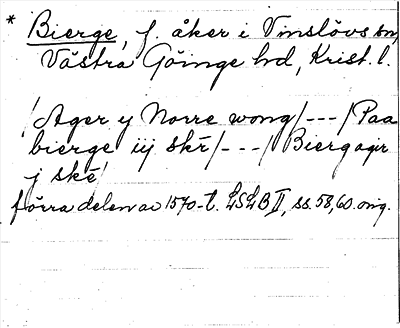 * Bierge, f. åker i Vinslövs sn,
Västra Göinge hd, Krist. l.
'Ager y Norre wong/---/Paa
bierge iij skē/---/Biergagir
j skē'
förra delen av 1570-t. LSLB II, ss. 58, 60. orig.